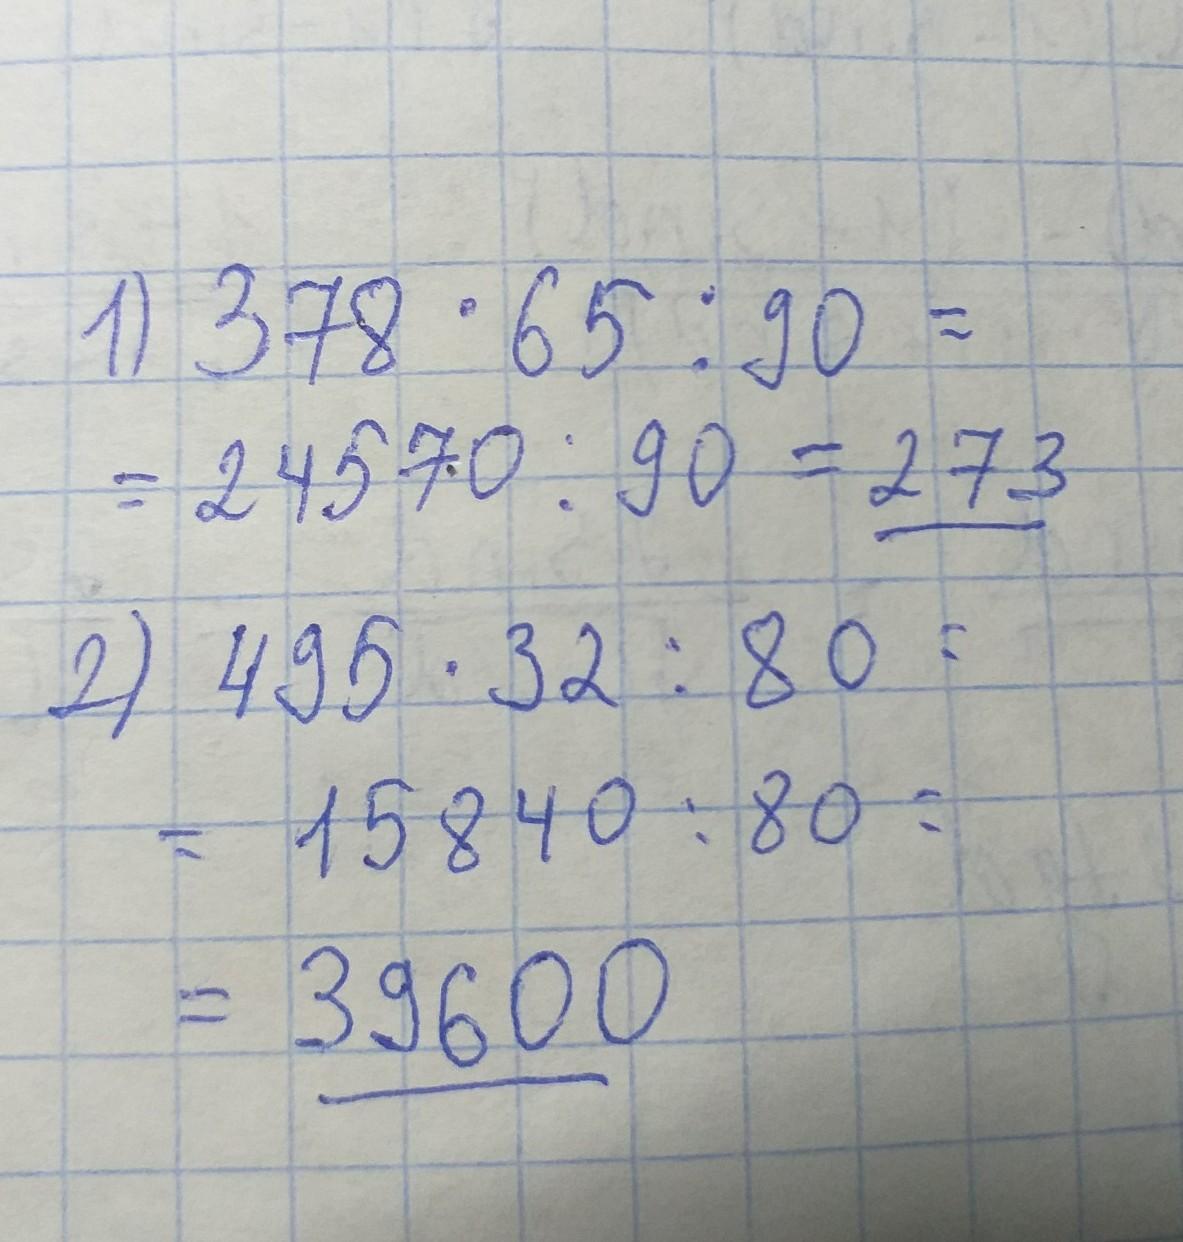 1) 378 · 65 : 90 =
= 24570 : 90 = 273
2) 495 · 32 : 80 =
= 15840 : 80 =
= 39600